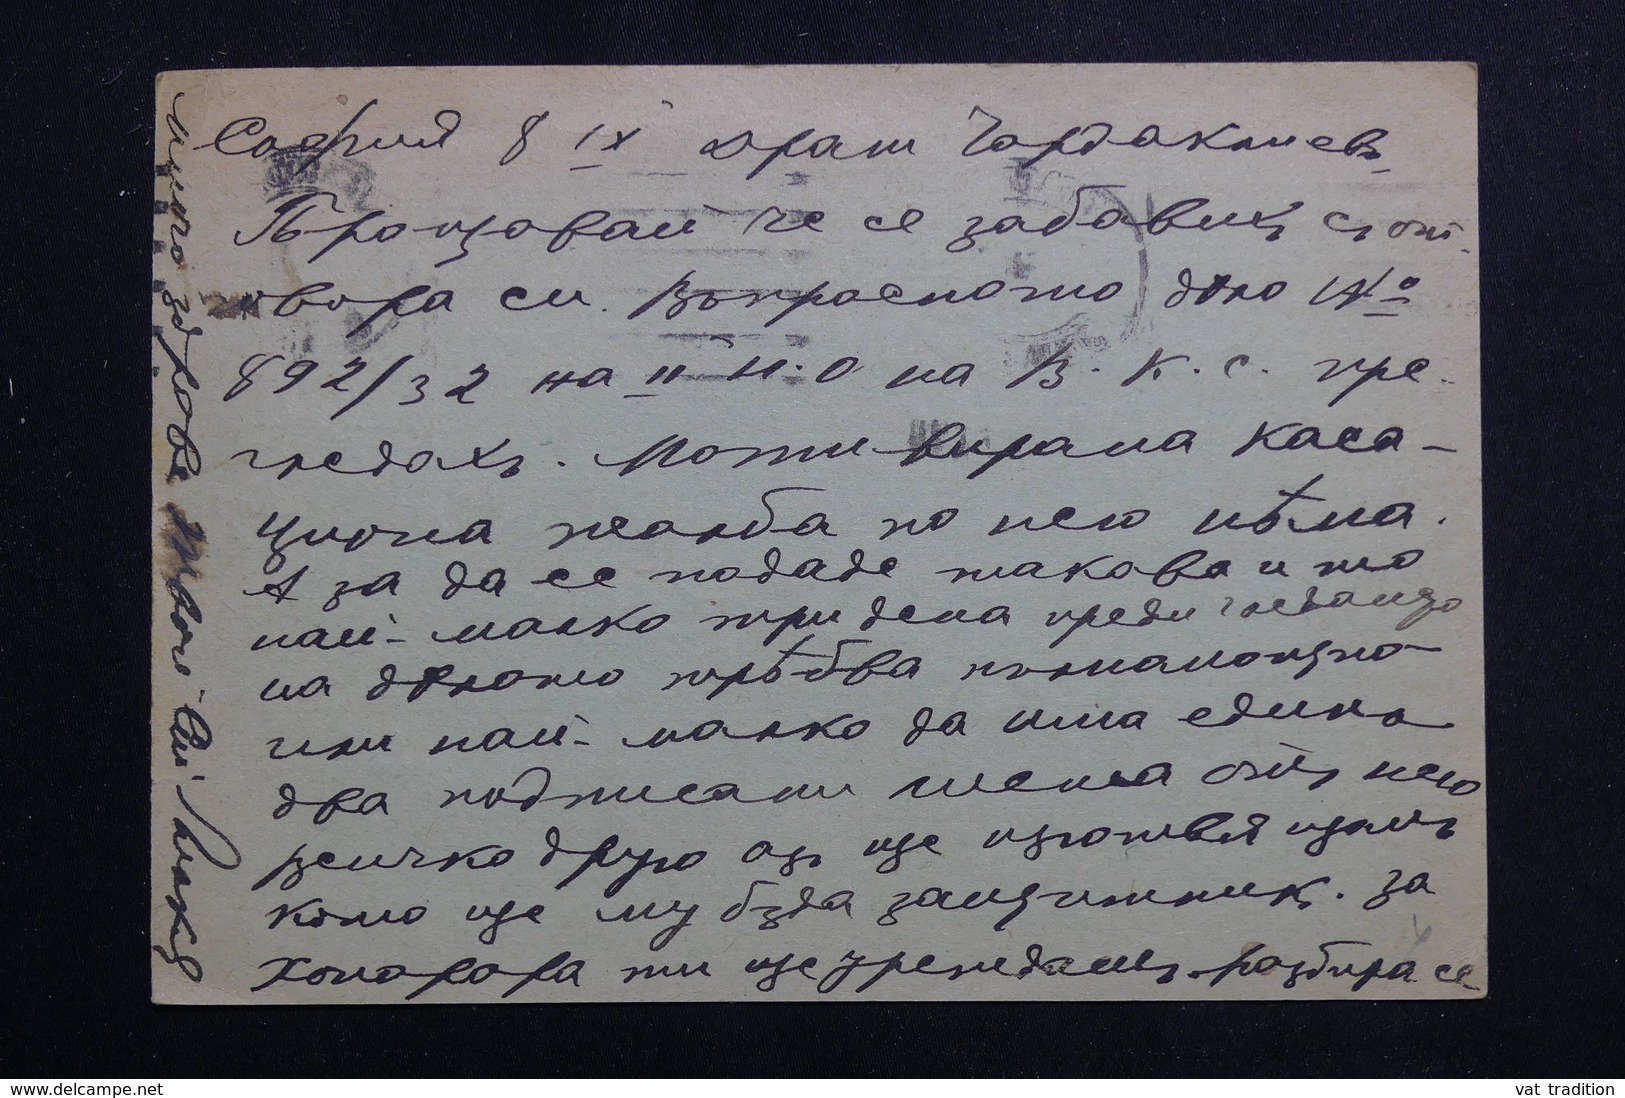 София 8 IX драги Чардаклиевъ
Прощавай че се забавихъ съ от-
говора си. Въпросното дѣло №
892/32 на II н.о на В. К. С. пре-
гледахъ. Мотивирана каса-
ционна жалба по него нѣма.
А за да се подаде такова и то
най-малко три дена преди гледанео
на дѣлото трѣбва пълномощно
или най-малко да има единъ
два подписани листа отъ него
всичко друго азъ ще изготвя
като ще му бѫда защитникъ. За
хонорара ти ще уреждашъ. разбира се
много здраве твой
www.delcampe.net
vat tradition